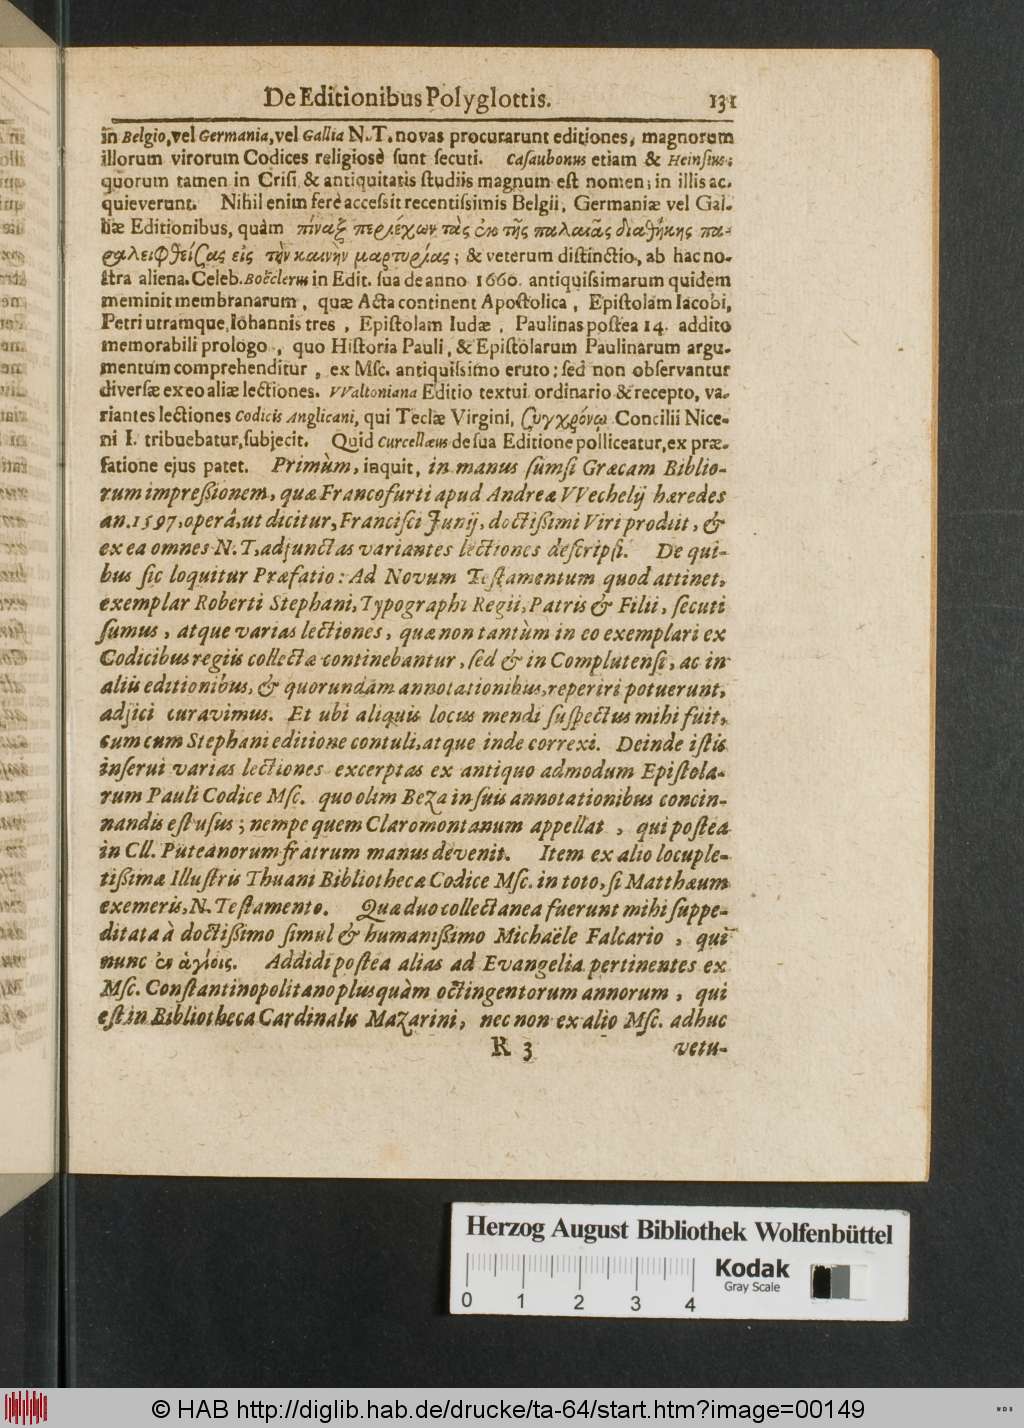 De Editionibus Polyglottis. 131
in Belgio, vel Germania, vel Gallia N.T. novas procurarunt editiones, magnorum
illorum virorum Codices religiosè sunt secuti. Casaubonus etiam & Heinsius;
quorum tamen in Crisi & antiquitatis studiis magnum est nomen; in illis ac-
quieverunt. Nihil enim ferè accessit recentissimis Belgii, Germaniæ vel Gal-
liæ Editionibus, quàm πίναξ περιέχων τὰς ἐκ τῆς παλαιᾶς διαθήκης πα-
ραλειφθείσας εἰς τὴν καινὴν μαρτυρίας; & veterum distinctio, ab hac no-
stra aliena. Celeb. Boëclerus in Edit. sua de anno 1660. antiquissimarum quidem
meminit membranarum, quæ Acta continent Apostolica, Epistolam Iacobi,
Petri utramque, Iohannis tres, Epistolam Iudæ, Paulinas postea 14. addito
memorabili prologo, quo Historia Pauli, & Epistolarum Paulinarum argu-
mentum comprehenditur, ex Msc. antiquissimo eruto; sed non observantur
diversæ ex eo aliæ lectiones. VValtoniana Editio textui ordinario & recepto, va-
riantes lectiones Codicis Anglicani, qui Teclæ Virgini, συγχρόνῳ Concilii Nice-
ni I. tribuebatur, subjecit. Quid Curcellæus de sua Editione polliceatur, ex præ-
fatione ejus patet. Primùm, inquit, in manus sumsi Græcam Biblio-
rum impressionem, quæ Francofurti apud Andreæ VVechelij hæredes
an. 1597, operâ, ut dicitur, Francisci Junij, doctissimi Viri prodiit, &
ex ea omnes N.T, adjunctas variantes lectiones descripsi. De qui-
bus sic loquitur Præfatio: Ad Novum Testamentum quod attinet,
exemplar Roberti Stephani, Typographi Regii, Patris & Filii, secuti
sumus, atque varias lectiones, quæ non tantùm in eo exemplari ex
Codicibus regiis collectæ continebantur, sed & in Complutensi, ac in
aliis editionibus, & quorundam annotationibus, reperiri potuerunt,
adjici curavimus. Et ubi aliquis locus mendi suspectus mihi fuit,
eum cum Stephani editione contuli, atque inde correxi. Deinde istis
inserui varias lectiones excerptas ex antiquo admodum Epistola-
rum Pauli Codice Msc. quo olim Beza in suis annotationibus concin-
nandis est usus; nempe quem Claromontanum appellat, qui postea
in Cll. Puteanorum fratrum manus devenit. Item ex alio locuple-
tissimæ Illustris Thuani Bibliothecæ Codice Msc. in toto, si Matthæum
exemeris, N. Testamento. Quæ duo collectanea fuerunt mihi suppe-
ditata à doctissimo simul & humanissimo Michaële Falcario, qui
nunc ἐν ἁγίοις. Addidi postea alias ad Evangelia pertinentes ex
Msc. Constantinopolitano plus quàm octingentorum annorum, qui
est in Bibliotheca Cardinalis Mazarini, nec non ex alio Msc. adhuc
R 3 vetu-
Herzog August Bibliothek Wolfenbüttel
Kodak
Gray Scale
0 1 2 3 4
© HAB http://diglib.hab.de/drucke/ta-64/start.htm?image=00149